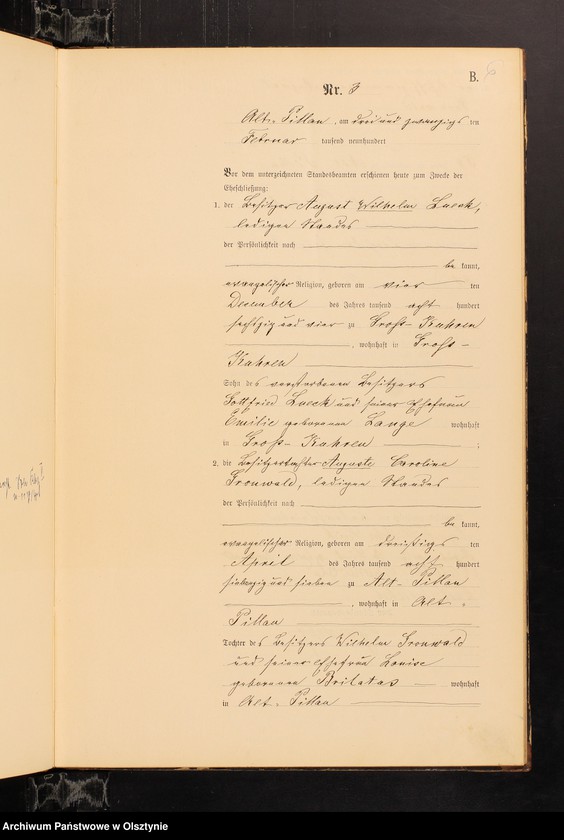 B. 6
Nr. 3
Alt-Pillau, am drei und zwanzigs ten
Februar tausend neunhundert
Vor dem unterzeichneten Standesbeamten erschienen heute zum Zwecke der
Eheschließung:
1. der Besitzer August Wilhelm Lueck,
ledigen Standes
der Persönlichkeit nach
be kannt,
evangelischer Religion, geboren am vier ten
Dezember des Jahres tausend acht hundert
sechszig und vier zu Groß-Kuhren
, wohnhaft in Groß-
Kuhren
Sohn des verstorbenen Besitzers
Gottfried Lueck und seiner Ehefrau
Emilie geborenen Lange wohnhaft
in Groß-Kuhren ;
2. die Besitzertochter Auguste Caroline
Gronwald, ledigen Standes
der Persönlichkeit nach
be kannt,
evangelischer Religion, geboren am dreißigs ten
April des Jahres tausend acht hundert
siebenzig und sieben zu Alt-Pillau
, wohnhaft in Alt-
Pillau
Tochter des Besitzers Wilhelm Gronwald
und seiner Ehefrau Louise
geborenen wohnhaft
in Alt-Pillau
Archiwum Państwowe w Olsztynie